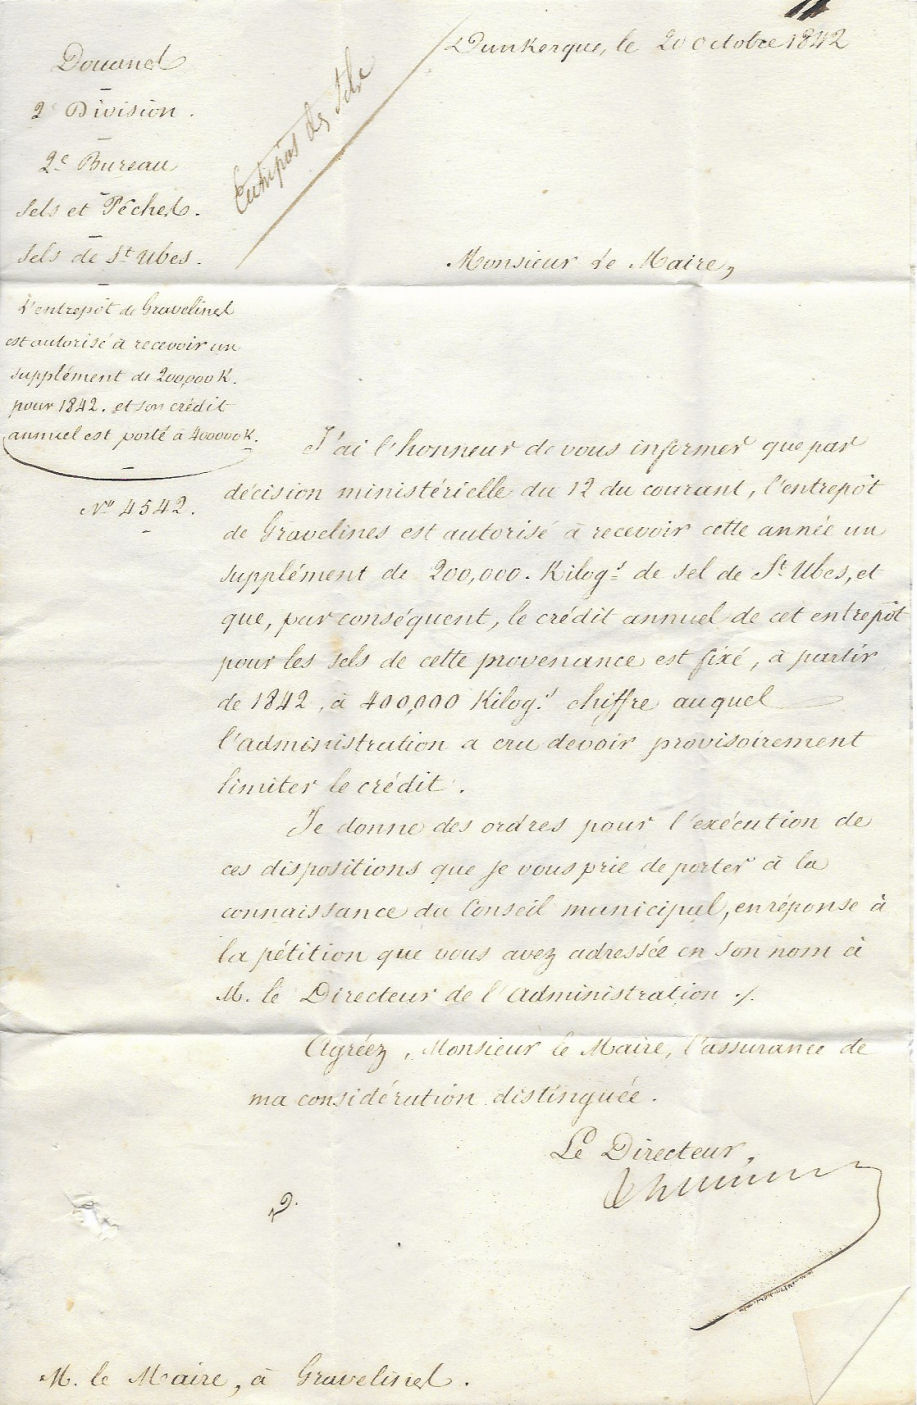 Dunkerque, le 20 Octobre 1842
Douanes
2e Division.
2e Bureau
Sels et Pêches.
Sels de St. Ubes.
Monsieur Le Maire,
L'entrepôt de Gravelines
est autorisé à recevoir un
supplément de 200,000 K.
pour 1842. et son crédit
annuel est porté à 400000 K.
No 4542.
J'ai l'honneur de vous informer que par
décision ministérielle du 12 du courant, l'entrepôt
de Gravelines est autorisé à recevoir cette année un
supplément de 200,000. Kilogs. de sel de St. Ubes, et
que, par conséquent, le crédit annuel de cet entrepôt
pour les sels de cette provenance est fixé, à partir
de 1842, à 400,000 Kilogs. chiffre auquel
l'administration a cru devoir provisoirement
limiter le crédit.
Je donne des ordres pour l'exécution de
ces dispositions que je vous prie de porter à la
connaissance du Conseil municipal, en réponse à
la pétition que vous avez adressée en son nom à
M. le Directeur de l'Administration ./.
Agréez, Monsieur le Maire, l'assurance de
ma considération distinguée.
Le Directeur,
M. le Maire, à Gravelines.